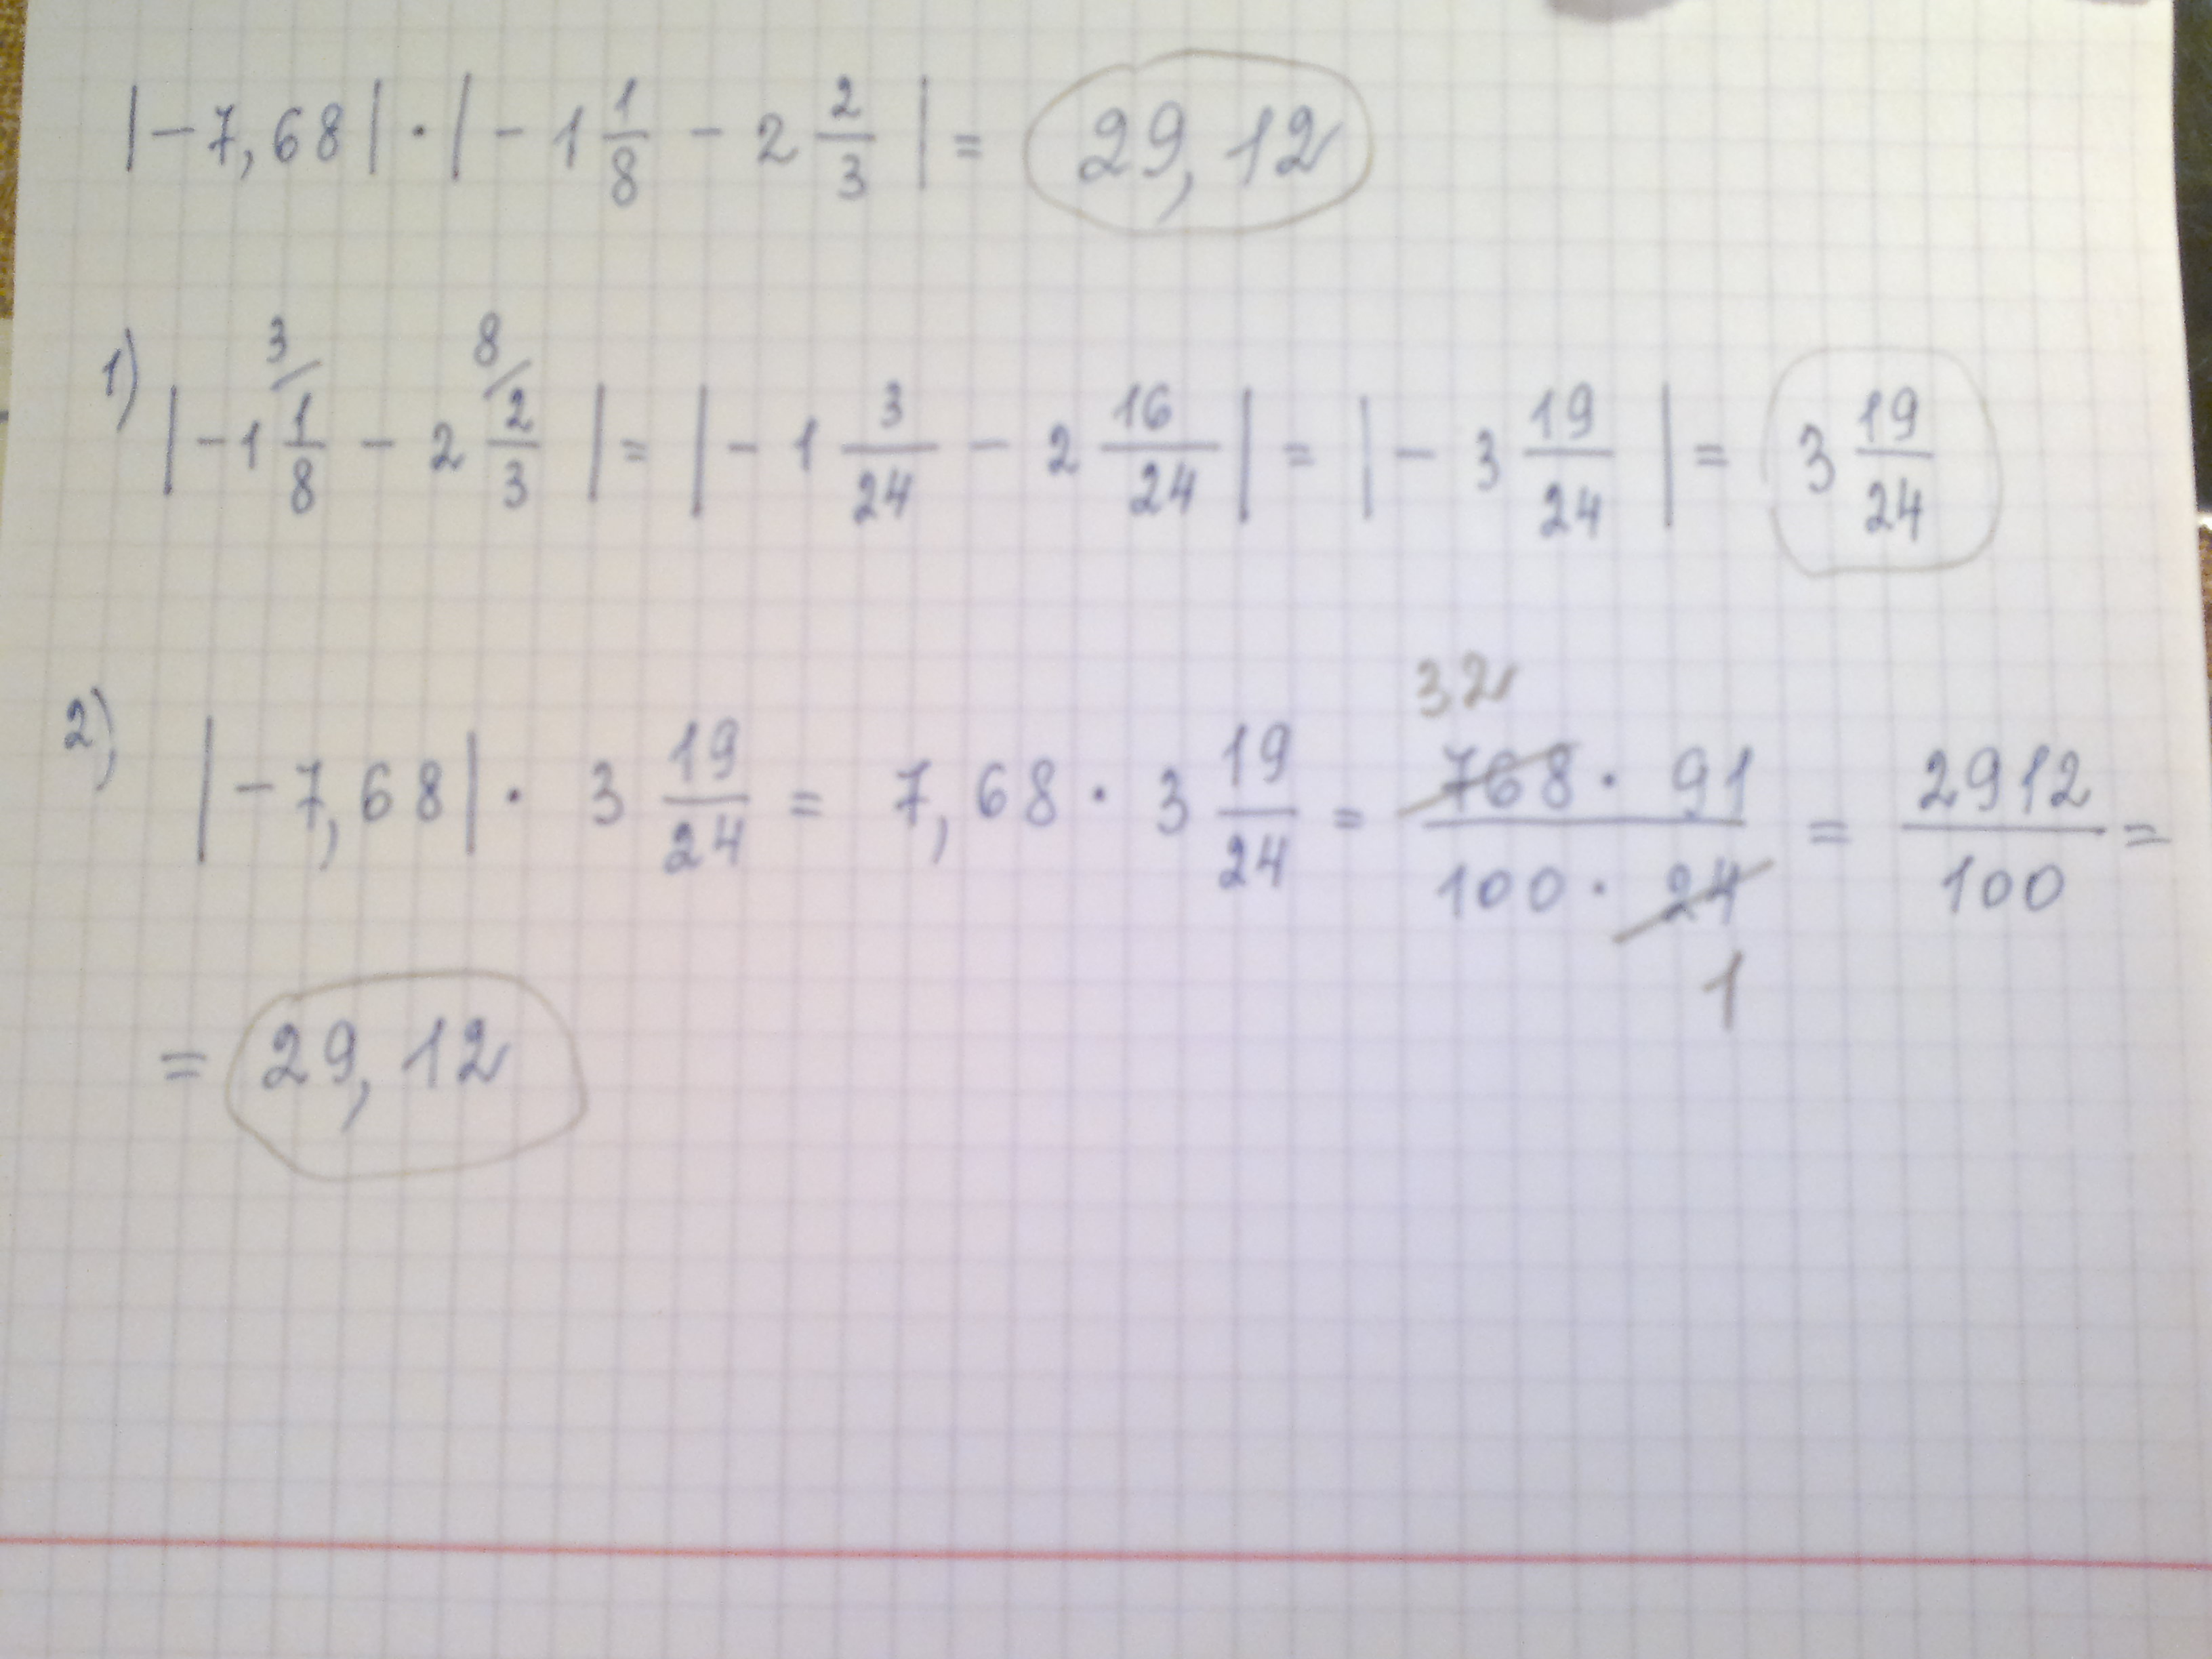 |-7,68| · |-1 1/8 - 2 2/3| = 29,12
1) |-1 3/ 1/8 - 2 8/ 2/3| = |-1 3/24 - 2 16/24| = |-3 19/24| = 3 19/24
2) |-7,68| · 3 19/24 = 7,68 · 3 19/24 = 32 768 · 91 / 100 · 24 1 = 2912/100 =
= 29,12